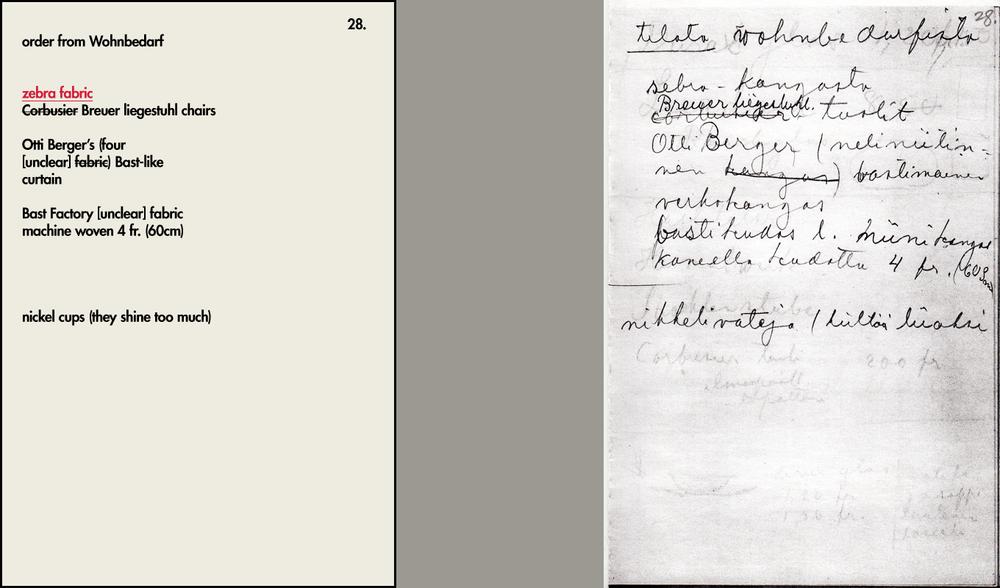 28.
order from Wohnbedarf
zebra fabric
Corbusier Breuer liegestuhl chairs
Otti Berger's (four
[unclear] fabric) Bast-like
curtain
Bast Factory [unclear] fabric
machine woven 4 fr. (60cm)
nickel cups (they shine too much)
28.
tilata wohnbedarfista
sebra - kangasta
Breuer liegestuhl.
corbusier tuolit
Otti Berger (neliniitin-
nen kangas) bastimainen
verhokangas
bastikudos l.
koneella kudottu 4 fr.
nikkelivateja / kiiltää liiaksi
Corbusier 200 fr